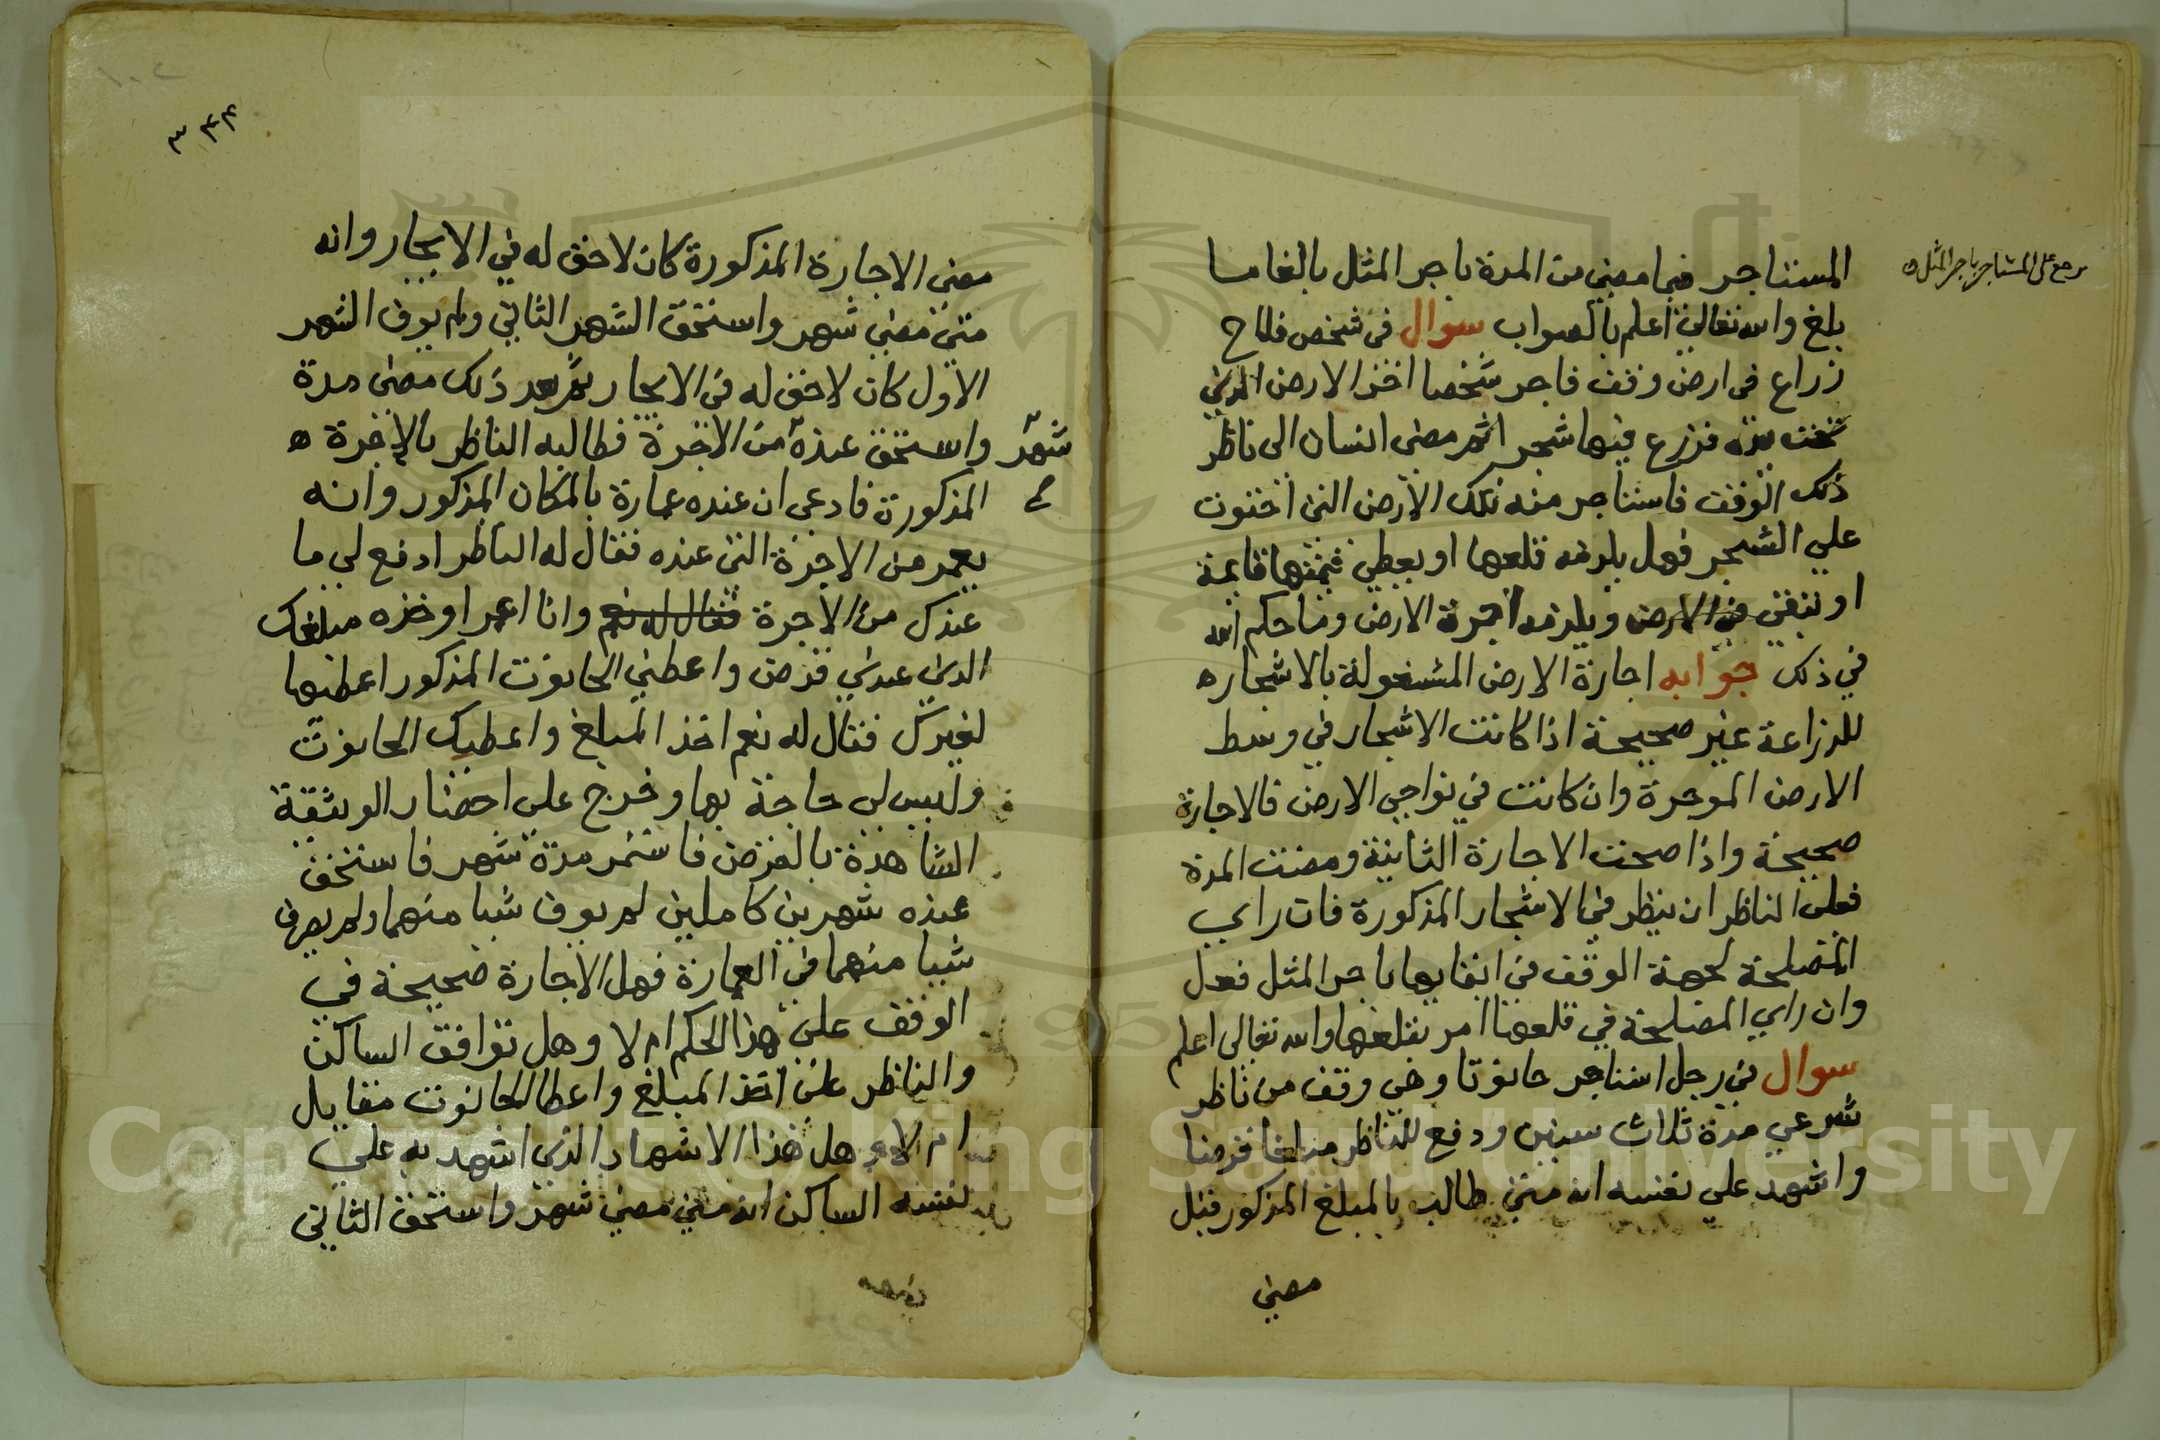 يرجع على المستاجر باجر المثل ه
المستاجر فيما مضى من المدة باجر المثل بالغا ما
بلغ والله تعالى اعلم بالصواب سوال في شخص فلاح
زراع في ارض وقف فاجر شخصا اخر الارض الذي
تحت يده فزرع فيها شجر اثم مضى انسان الى ناظر
ذلك الوقف فاستاجر منه تلك الارض التي احتوت
علي الشجر فهل يلزمه قلعها او يعطي قيمتها قايمة
او تبقى في الارض ويلزمه اجرة الارض وما حكم الله
في ذلك جوابه اجارة الارض المشغولة بالاشجار ه
للزراعة غير صحيحة اذا كانت الاشجار في وسط
الارض الموجرة وان كانت في نواحي الارض فالاجارة
صحيحة واذا صحت الاجارة الثانية ومضت المدة
فعلى الناظر ان ينظر في الاشجار المذكورة فان راي
المصلحة لجهة الوقف في ابقايها باجر المثل فعل
وان راي المصلحة في قلعها امر بقلعها والله تعالى اعلم
سوال في رجل استاجر حانوتا وهي وقف من ناظر
شرعي مدة ثلاث سنين ودفع للناظر مبلغا قرضا
واشهد على نفسه انه متى طالب بالمبلغ المذكور قبل
مضي
٣٤٤
مضي الاجارة المذكورة كان لا حق له في الايجار وانه
متى مضي شهر واستحق الشهر الثاني ولم يوف الشهر
الاول كان لا حق له في الايجار ثم بعد ذلك مضى مدة
شهر واستحق عنده من الاجرة فطالبه الناظر بالاجرة ه
المذكورة فادعى ان عنده عمارة بالمكان المذكور وانه
يعمر من الاجرة التي عنده فقال له الناظر ادفع لي ما
عندك من الاجرة فقال له نعم وانا اعمر او خذه مبلغك
الذي عندي قرض واعطني الحانوت المذكور اعطيها
لغيرك فقال له نعم اخذ المبلغ واعطيك الحانوت
وليس لي حاجة بها وخرج على احضار الوثيقة
الشاهدة بالقرض فاستمر مدة شهر فاستحق
عنده شهرين كاملين لم يوف شيا منهما ولم يصرف
شيا منهما في العمارة فهل الاجارة صحيحة في
الوقف على هذا الحكم ام لا وهل توافق الساكن
والناظر على اخذ المبلغ واعطا الحانوت مقابل
ام لا وهل هذا الاشهاد الذي اشهد به علي
نفسه الساكن انه متي مضي شهر واستحق الثاني
Copyright © King Saud University